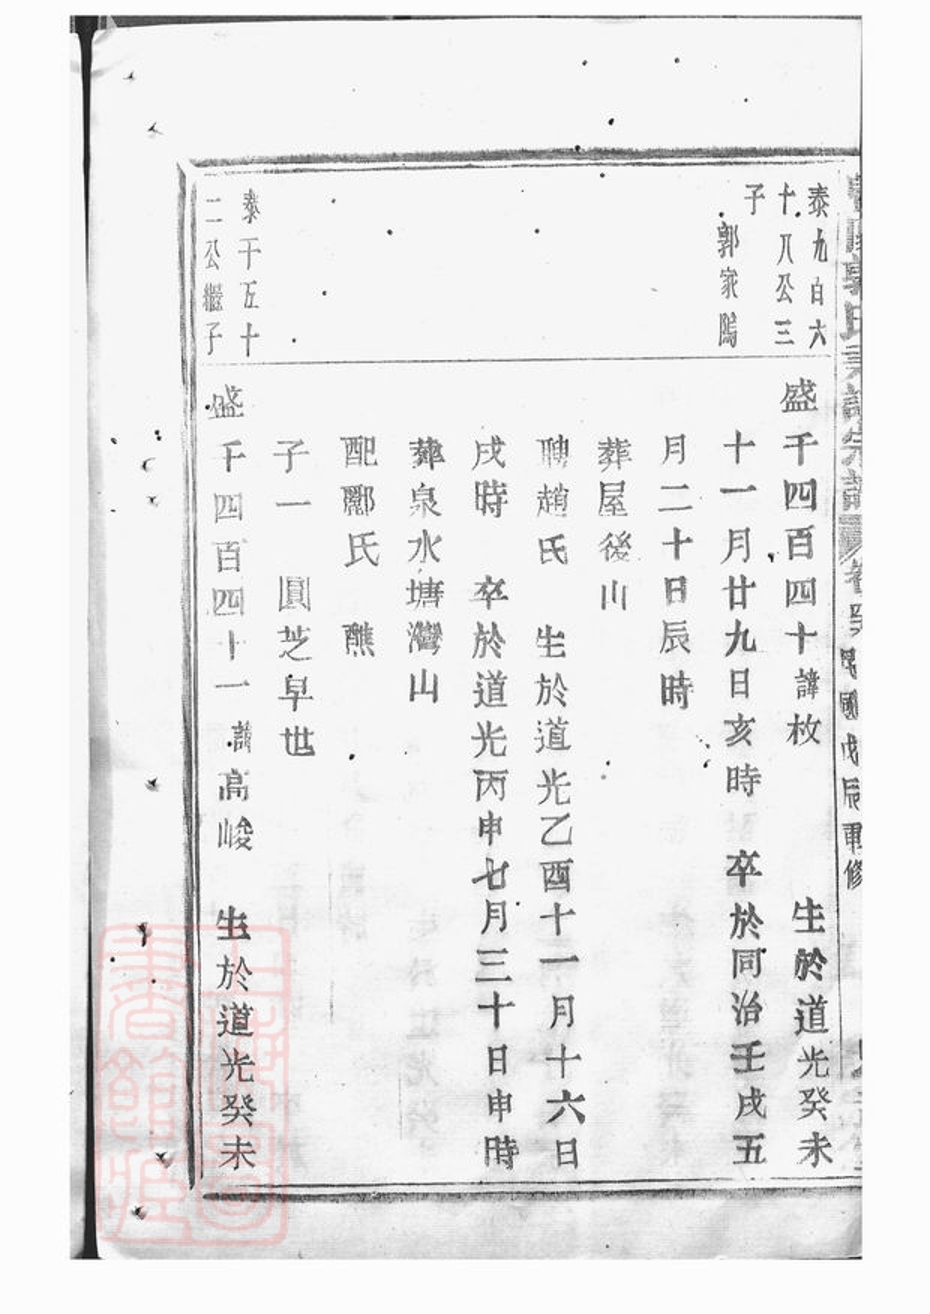 泰九百六
十八公三
子
郭家隖
盛千四百四十諱枚　生於道光癸未
十一月廿九日亥時　卒於同治壬戌五
月二十日辰時
葬屋後山
聘趙氏　生於道光乙酉十一月十六日
戌時　卒於道光丙申七月三十日申時
葬泉水塘灣山
配酈氏　醮
子一　圓芝早世
泰千五十
二公繼子
盛千四百四十一諱高峻　生於道光癸未
民國戊辰重修